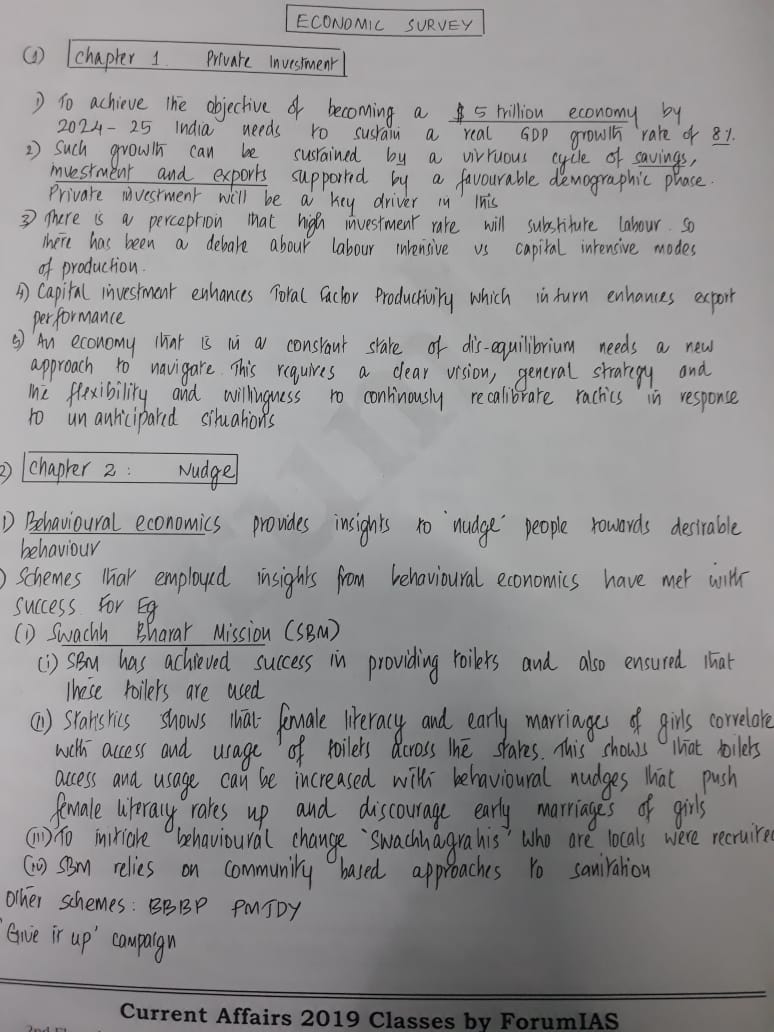 ECONOMIC SURVEY
(1) Chapter 1 Private Investment
1) To achieve the objective of becoming a $ 5 trillion economy by
2024-25 India needs to sustain a real GDP growth rate of 8%.
2) Such growth can be sustained by a virtuous cycle of savings,
investment and exports supported by a favourable demographic phase.
Private investment will be a key driver in this
3) There is a perception that high investment rate will substitute labour. So
there has been a debate about labour intensive vs capital intensive modes
of production.
4) Capital investment enhances Total Factor Productivity which in turn enhances export
performance
5) An economy that is in a constant state of dis-equilibrium needs a new
approach to navigate. This requires a clear vision, general strategy and
the flexibility and willingness to continously recalibrate tactics in response
to unanticipated situations
2) Chapter 2 : Nudge
1) Behavioural economics provides insights to 'nudge' people towards desirable
behaviour
) Schemes that employed insights from behavioural economics have met with
success. For Eg
(i) Swachh Bharat Mission (SBM)
(i) SBM has achieved success in providing toilets and also ensured that
these toilets are used
(ii) Statistics shows that female literacy and early marriages of girls correlate
with access and usage of toilets across the states. This shows that toilets
access and usage can be increased with behavioural nudges that push
female literacy rates up and discourage early marriages of girls
(iii) To initiate behavioural change 'Swachhagrahis' who are locals were recruited
(iv) SBM relies on community based approaches to sanitation
Other schemes : BBBP PMJDY
'Give it up' campaign
Current Affairs 2019 Classes by ForumIAS